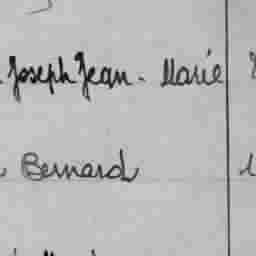 Joseph Jean-Marie
Bernard